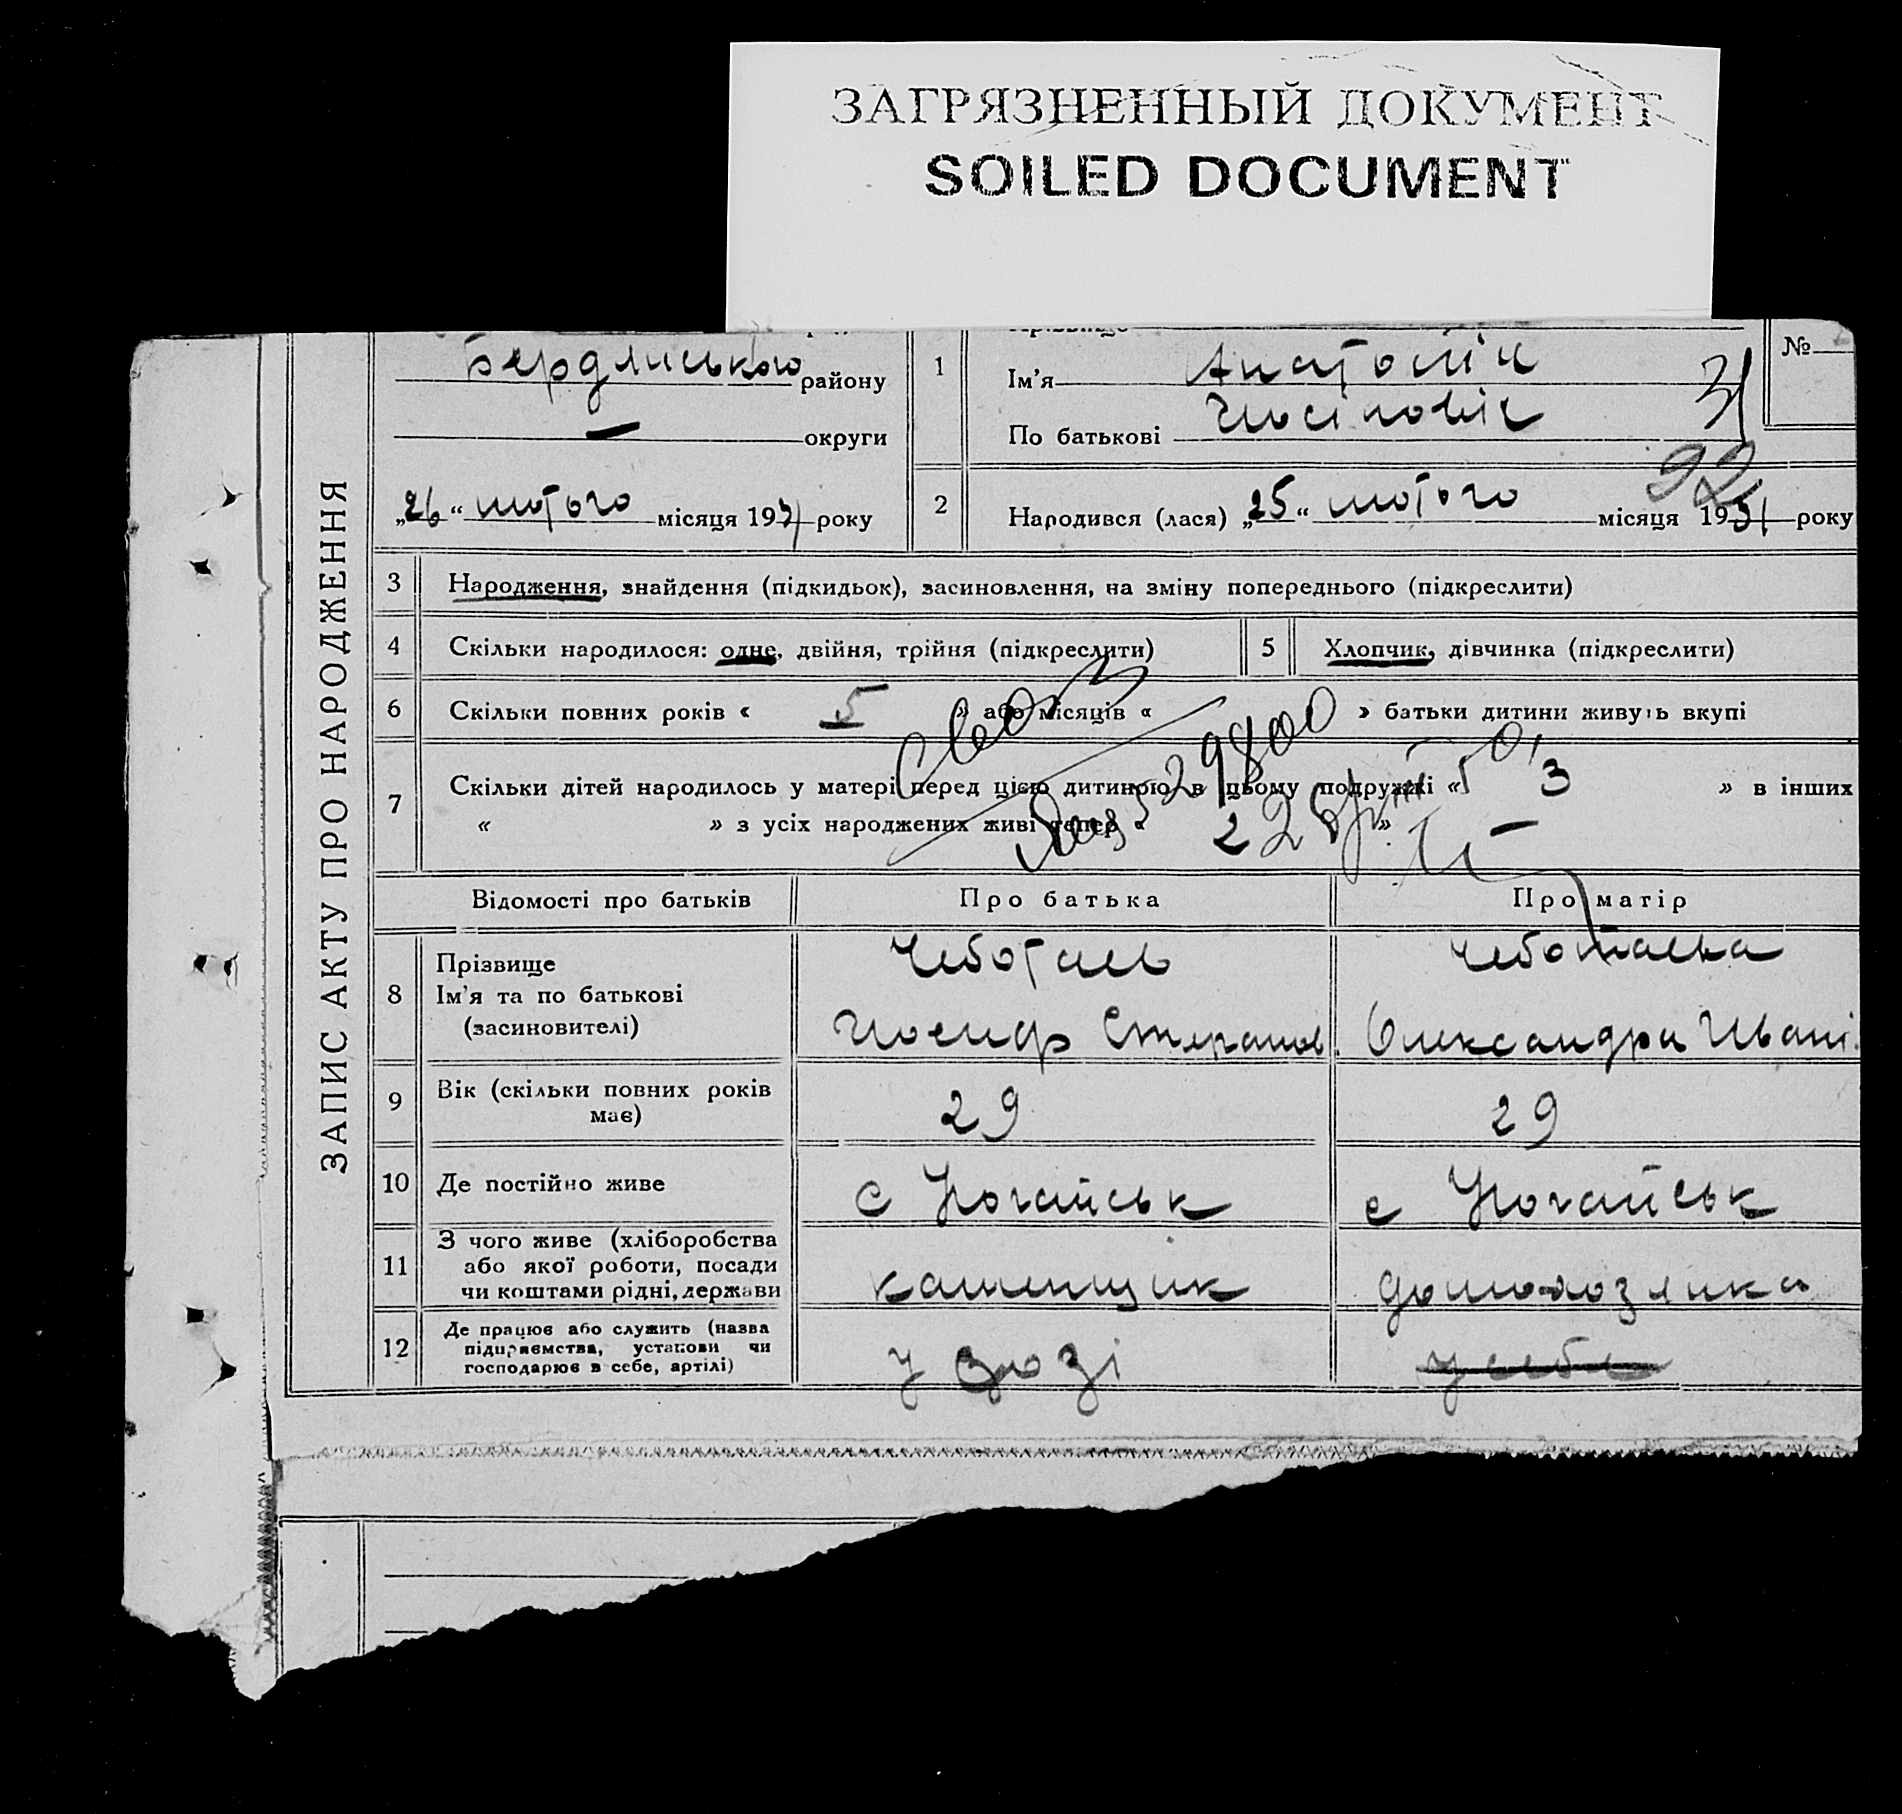 ЗАГРЯЗНЕННЫЙ ДОКУМЕНТ
SOILED DOCUMENT
ЗАПИС АКТУ ПРО НАРОДЖЕННЯ
Бердянського району
— округи
„26“ лютого місяця 1931 року
1
Ім’я Анатолій
По батькові Иосіповіч
№
31
92
2
Народився (лася) „25“ лютого місяця 1931 року
3 Народження, знайдення (підкидьок), засиновлення, на зміну попереднього (підкреслити)
4 Скільки народилося: одне, двійня, трійня (підкреслити)
5 Хлопчик, дівчинка (підкреслити)
6 Скільки повних років « 5 » або місяців « » батьки дитини живуть вкупі
7 Скільки дітей народилось у матері перед цією дитиною в цьому подружжі « 3 » в інших
« » з усіх народжених живі тепер « 2 »
Відомості про батьків Про батька Про матір
8 Прізвище
Ім’я та по батькові
(засиновителі)
Чеботаев
Иосиф Степанов.
Чеботаева
Олександра Івані.
9 Вік (скільки повних років має) 29 29
10 Де постійно живе с Ногайськ с Ногайськ
11 З чого живе (хліборобства
або якої роботи, посади
чи коштами рідні, держави
каменщик домохозяйка
12 Де працює або служить (назва
підприємства, установи чи
господарює в себе, артілі)
у себе